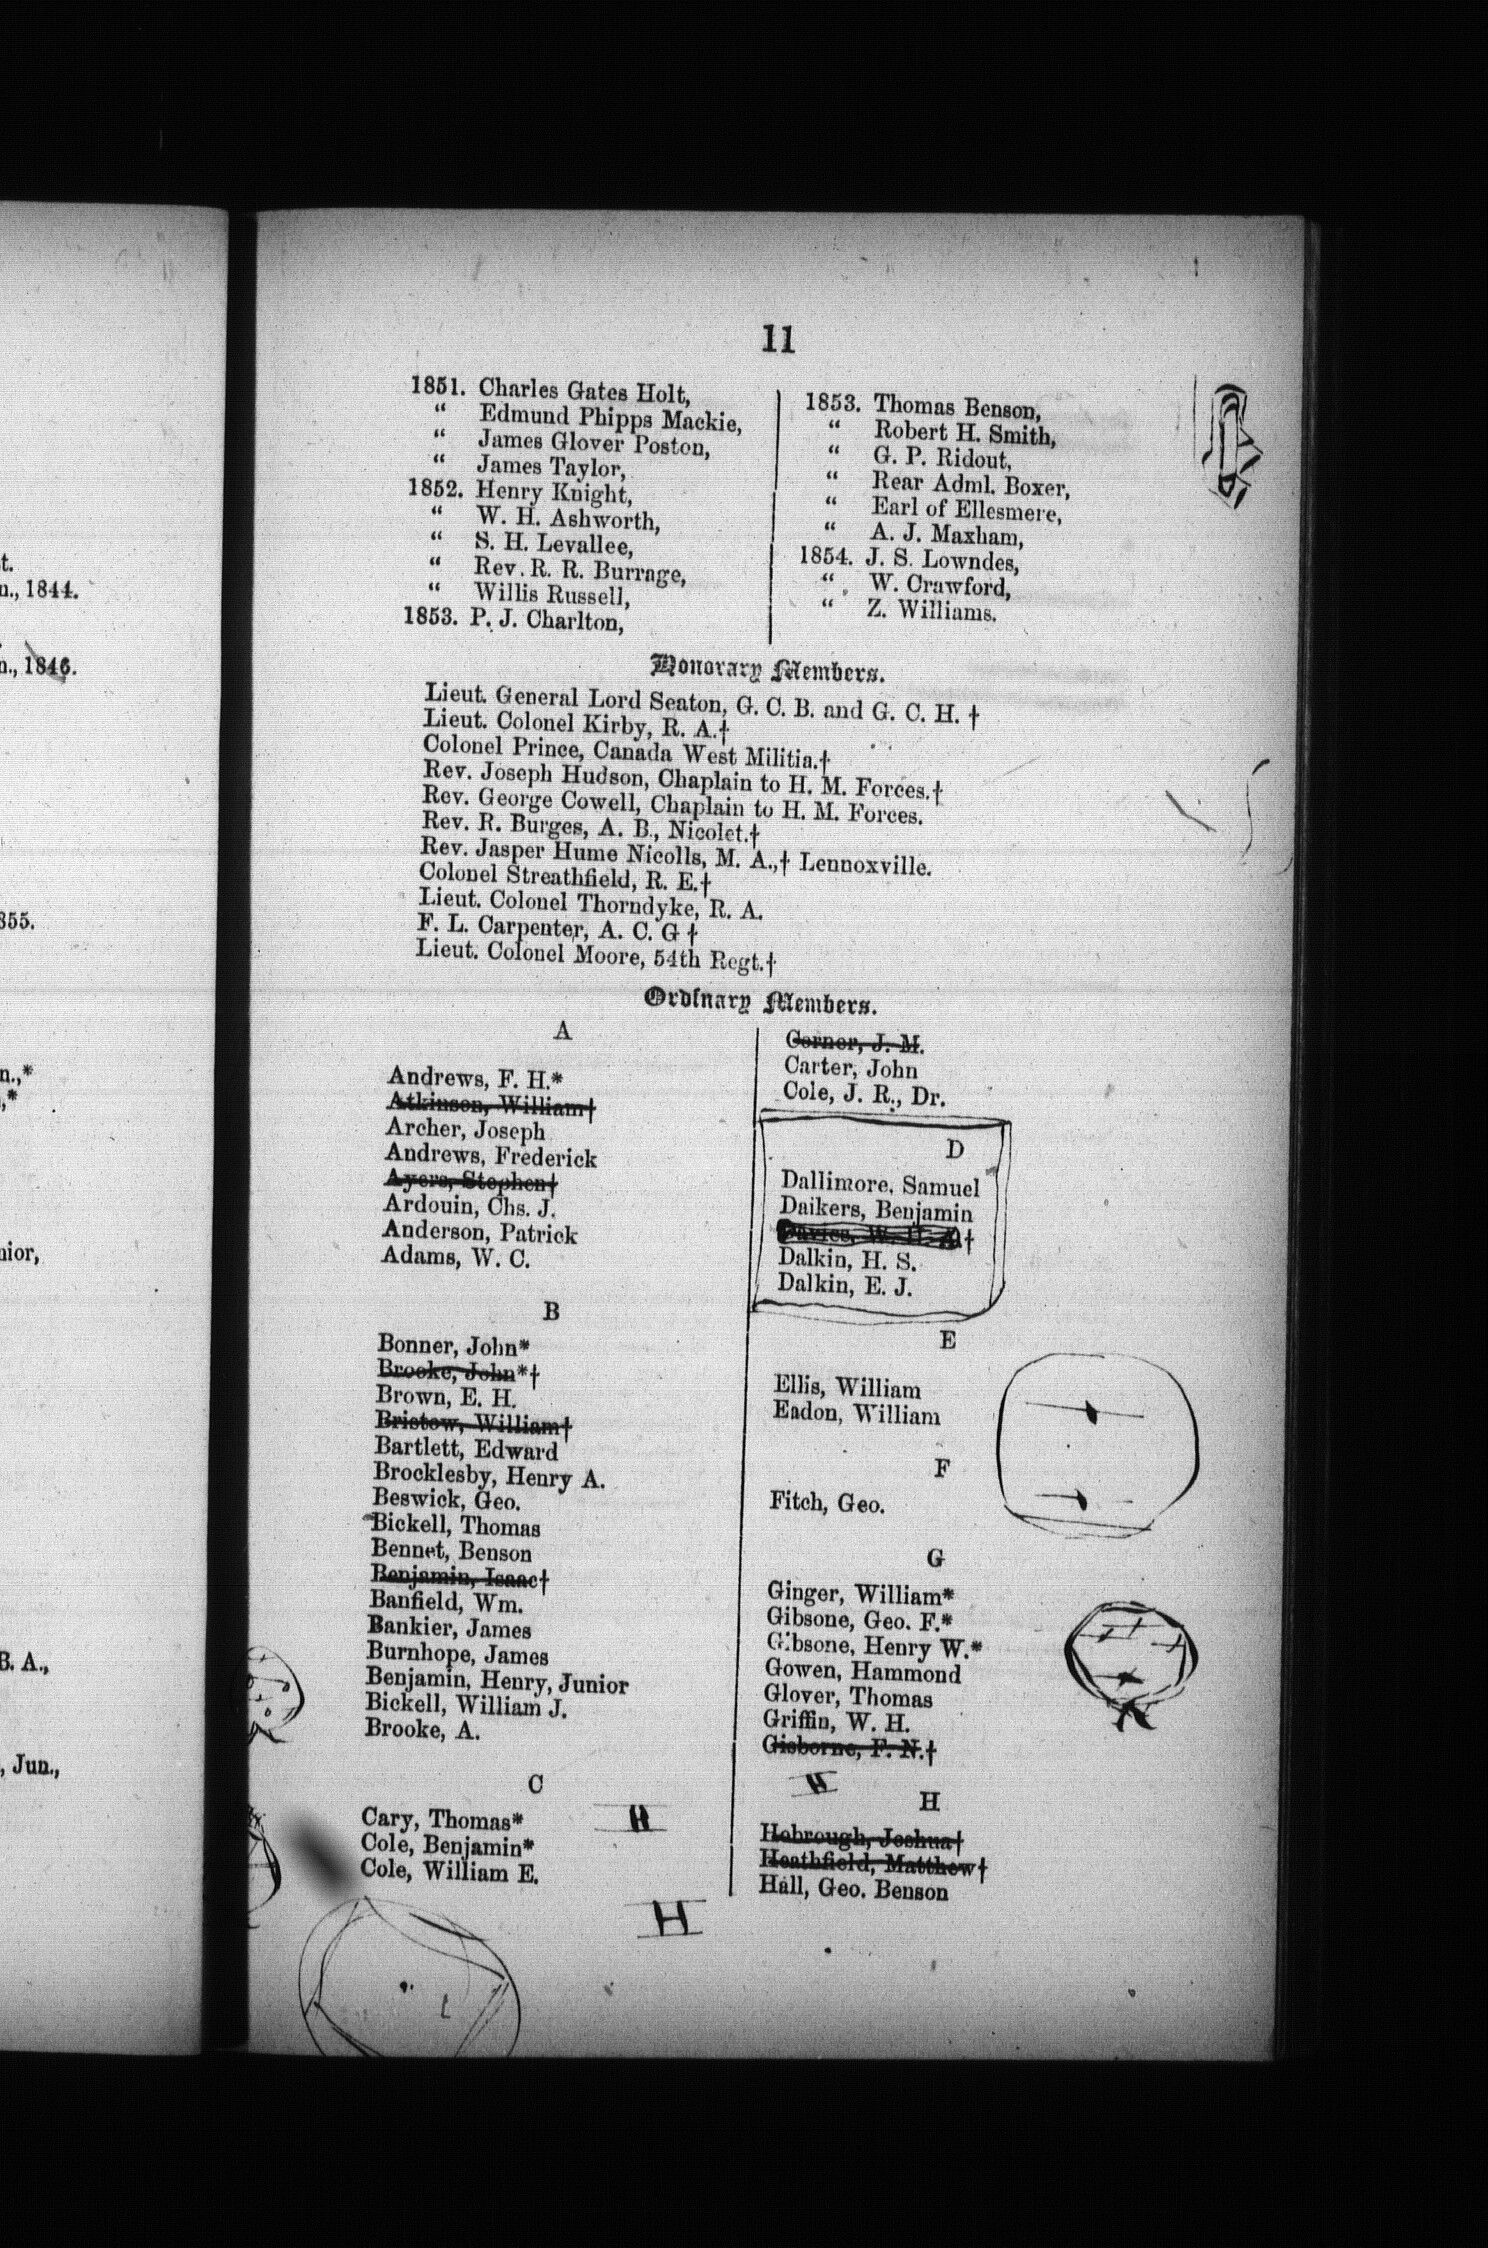 t.
n., 1844.
n., 1846.
855.
n.,*
,*
nior,
B. A.,
, Jun.,
11
1851. Charles Gates Holt,
“ Edmund Phipps Mackie,
“ James Glover Poston,
“ James Taylor,
1852. Henry Knight,
“ W. H. Ashworth,
“ S. H. Levallee,
“ Rev. R. R. Burrage,
“ Willis Russell,
1853. P. J. Charlton,
1853. Thomas Benson,
“ Robert H. Smith,
“ G. P. Ridout,
“ Rear Adml. Boxer,
“ Earl of Ellesmere,
“ A. J. Maxham,
1854. J. S. Lowndes,
“ W. Crawford,
“ Z. Williams.
Honorary Members.
Lieut. General Lord Seaton, G. C. B. and G. C. H. †
Lieut. Colonel Kirby, R. A.†
Colonel Prince, Canada West Militia.†
Rev. Joseph Hudson, Chaplain to H. M. Forces.†
Rev. George Cowell, Chaplain to H. M. Forces.
Rev. R. Burges, A. B., Nicolet.†
Rev. Jasper Hume Nicolls, M. A.,† Lennoxville.
Colonel Streathfield, R. E.†
Lieut. Colonel Thorndyke, R. A.
F. L. Carpenter, A. C. G †
Lieut. Colonel Moore, 54th Regt.†
Ordinary Members.
A
Andrews, F. H.*
Atkinson, William†
Archer, Joseph
Andrews, Frederick
Ayers, Stephen†
Ardouin, Chs. J.
Anderson, Patrick
Adams, W. C.
B
Bonner, John*
Brooke, John*†
Brown, E. H.
Bristow, William†
Bartlett, Edward
Brocklesby, Henry A.
Beswick, Geo.
Bickell, Thomas
Bennet, Benson
Benjamin, Isaac†
Banfield, Wm.
Bankier, James
Burnhope, James
Benjamin, Henry, Junior
Bickell, William J.
Brooke, A.
C
Cary, Thomas*
Cole, Benjamin*
Cole, William E.
H
H
Corner, J. M.
Carter, John
Cole, J. R., Dr.
D
Dallimore, Samuel
Daikers, Benjamin
Davies, W. H. A.†
Dalkin, H. S.
Dalkin, E. J.
E
Ellis, William
Eadon, William
F
Fitch, Geo.
G
Ginger, William*
Gibsone, Geo. F.*
Gibsone, Henry W.*
Gowen, Hammond
Glover, Thomas
Griffin, W. H.
Gisborne, F. N.†
H
H
Hobrough, Joshua†
Heathfield, Matthew†
Hall, Geo. Benson